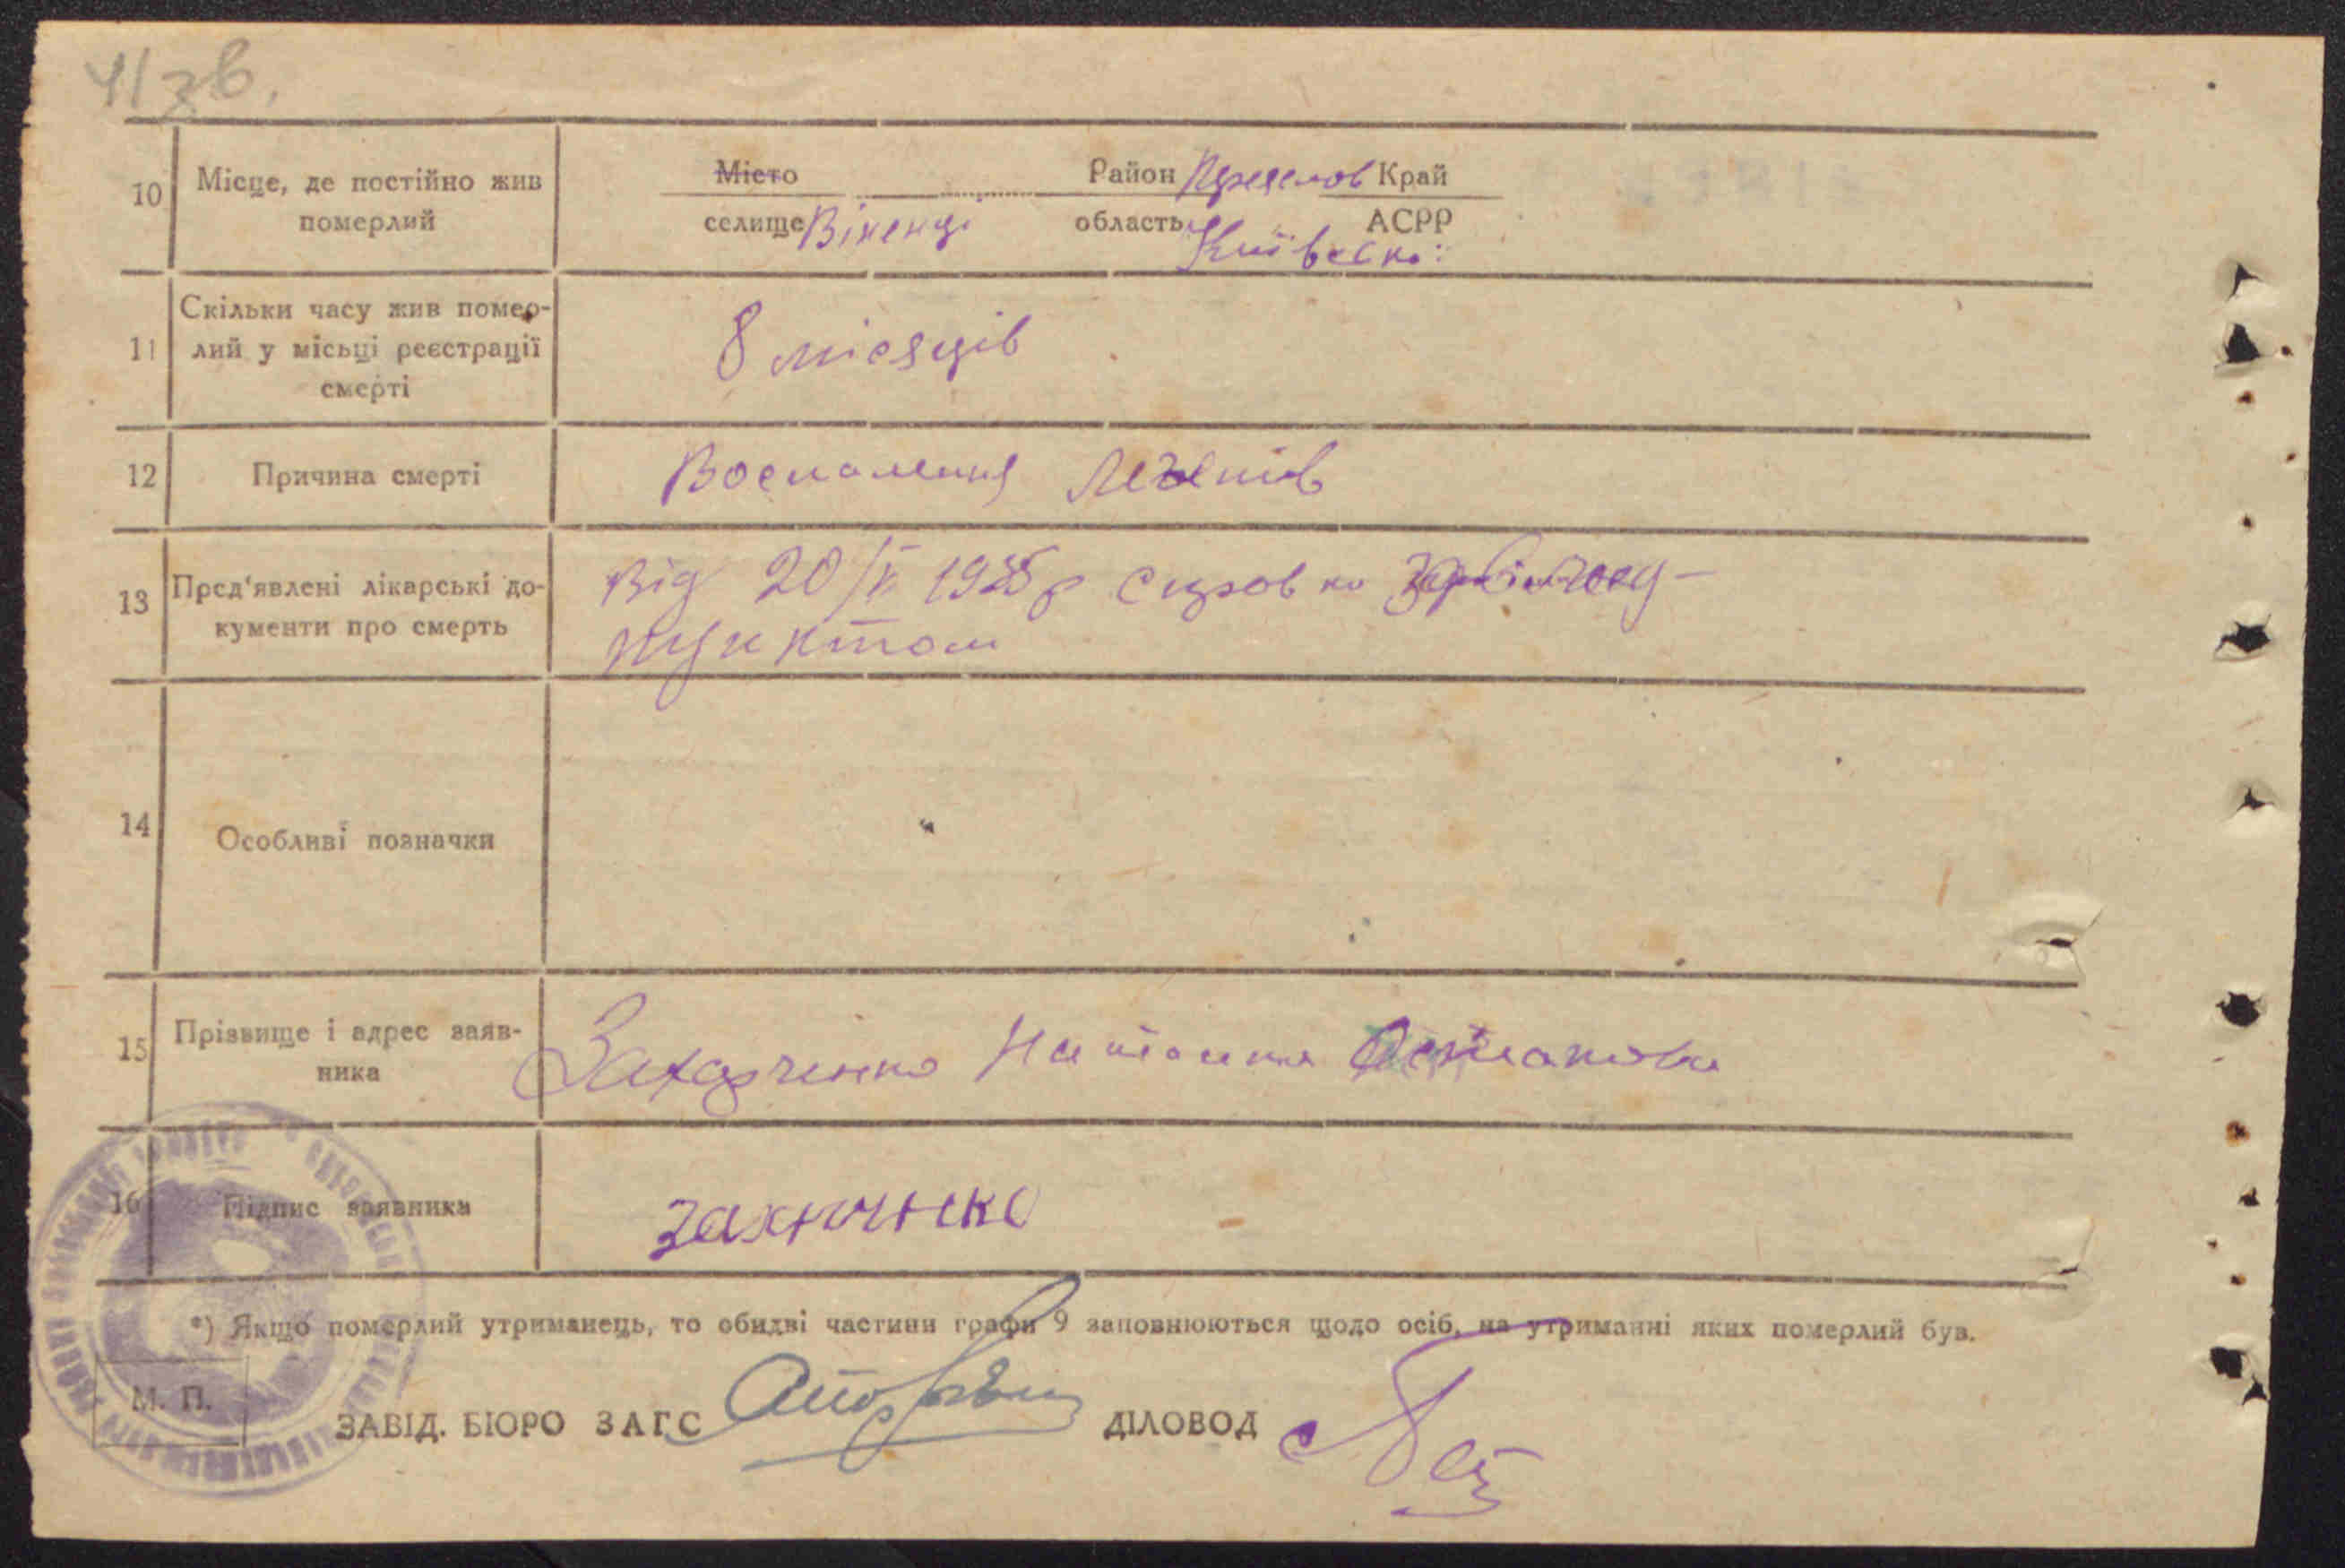 41зв.
10 Місце, де постійно жив померлий
Місто Район Край
селище Віненці область Київської АСРР
11 Скільки часу жив помер-
лий у місьці реєстрації
смерті
8 місяців
12 Причина смерті
Воспаления легенів
13 Пред'явлені лікарські до-
кументи про смерть
Від 20/V 1935р
пунктом
14 Особливі позначки
15 Прізвище і адрес заяв-
ника
Захарченко Наталка
16 Підпис заявника
захарченко
*) Якщо померлий утриманець, то обидві частини графи 9 заповнюються щодо осіб, на утриманні яких померлий був.
М. П.
ЗАВІД. БЮРО ЗАГС ДІЛОВОД